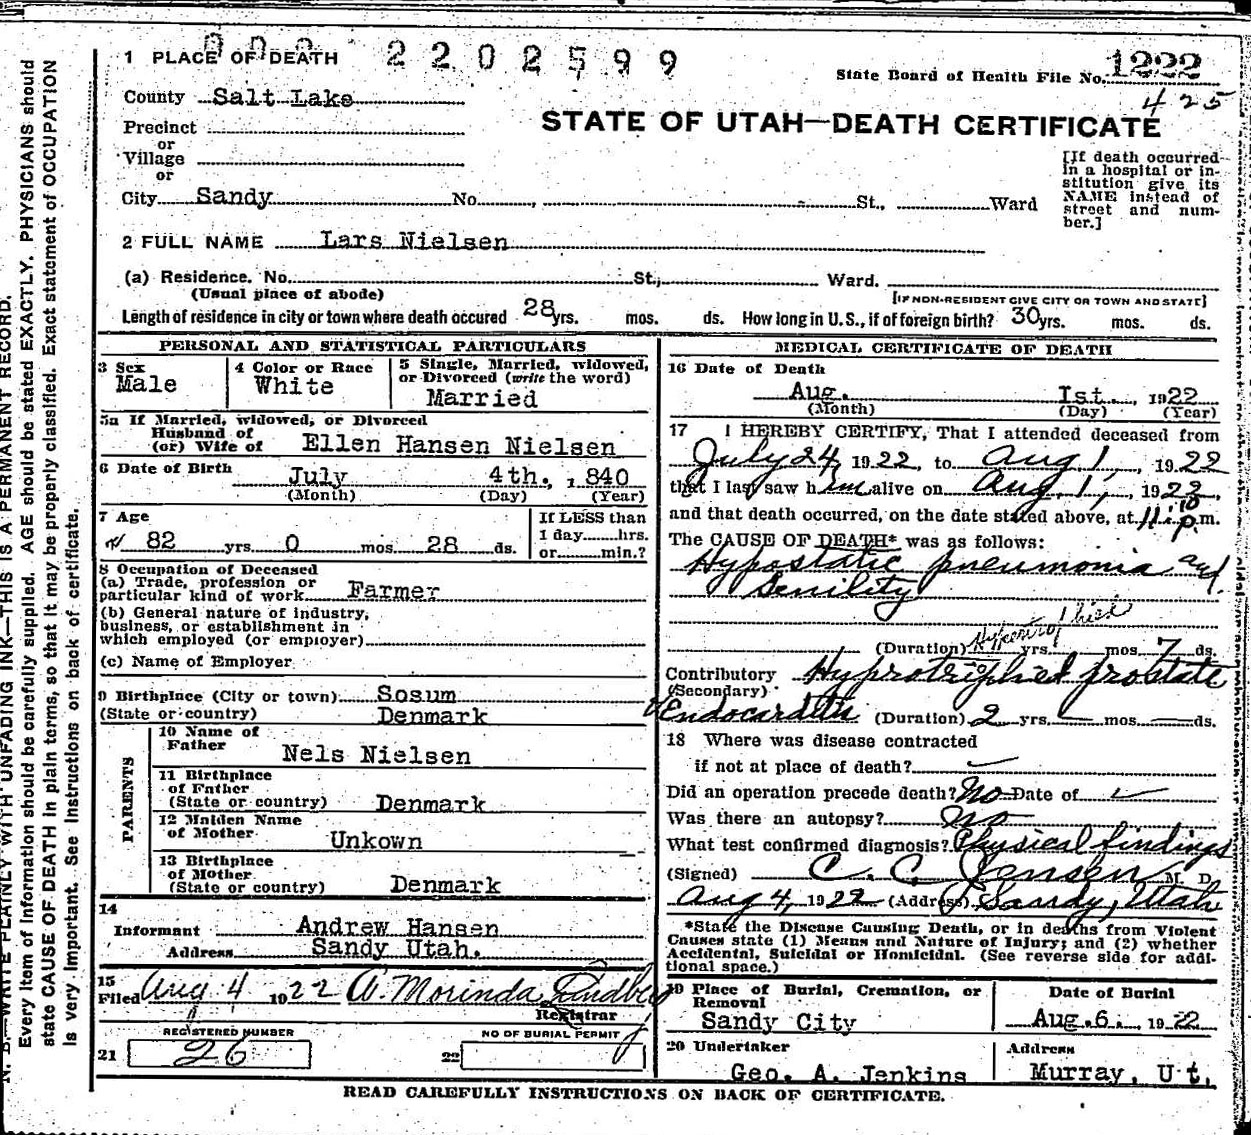 2202599
1 PLACE OF DEATH
State Board of Health File No. 1222
425
County Salt Lake
STATE OF UTAH—DEATH CERTIFICATE
Precinct
or
Village
or
City Sandy No. , St., Ward
[If death occurred
in a hospital or in-
stitution give its
NAME instead of
street and num-
ber.]
2 FULL NAME Lars Nielsen
(a) Residence. No. St., Ward.
(Usual place of abode)
[IF NON-RESIDENT GIVE CITY OR TOWN AND STATE]
Length of residence in city or town where death occured 28 yrs. mos. ds. How long in U. S., if of foreign birth? 30 yrs. mos. ds.
PERSONAL AND STATISTICAL PARTICULARS
3 Sex
Male
4 Color or Race
White
5 Single, Married, widowed,
or Divorced (write the word)
Married
5a If Married, widowed, or Divorced
Husband of
(or) Wife of Ellen Hansen Nielsen
6 Date of Birth
July 4th. , 1840
(Month) (Day) (Year)
7 Age
82 yrs. 0 mos. 28 ds.
If LESS than
1 day hrs.
or min.?
8 Occupation of Deceased
(a) Trade, profession or
particular kind of work Farmer
(b) General nature of industry,
business, or establishment in
which employed (or employer)
(c) Name of Employer
9 Birthplace (City or town) Sosum
(State or country) Denmark
PARENTS
10 Name of
Father Nels Nielsen
11 Birthplace
of Father
(State or country) Denmark
12 Maiden Name
of Mother Unkown
13 Birthplace
of Mother
(State or country) Denmark
14
Informant Andrew Hansen
Address Sandy Utah.
15
Filed Aug 4 1922 A. Morinda Lindberg
Registrar
REGISTERED NUMBER
21 26
NO OF BURIAL PERMIT
22
MEDICAL CERTIFICATE OF DEATH
16 Date of Death
Aug. Ist. , 1922
(Month) (Day) (Year)
17 I HEREBY CERTIFY, That I attended deceased from
July 24, 1922, to Aug 1, , 1922
that I last saw him alive on Aug. 1, , 1922,
and that death occurred, on the date stated above, at 11:10 p.m.
The CAUSE OF DEATH* was as follows:
Hypostatic pneumonia and
Senility
Hypertrophied
(Duration) yrs. mos. 7 ds.
Contributory Hyprotriphied prostate
(Secondary)
Endocarditis (Duration) 2 yrs. — mos. — ds.
18 Where was disease contracted
if not at place of death?
Did an operation precede death? No Date of
Was there an autopsy? No
What test confirmed diagnosis? Physical findings
(Signed) C. C. Jensen M. D.
Aug 4, 1922 (Address) Sandy, Utah
*State the Disease Causing Death, or in deaths from Violent
Causes state (1) Means and Nature of Injury; and (2) whether
Accidental, Suicidal or Homicidal. (See reverse side for addi-
tional space.)
19 Place of Burial, Cremation, or
Removal
Sandy City
Date of Burial
Aug. 6. , 1922
20 Undertaker
Geo. A. Jenkins
Address
Murray, Ut.
READ CAREFULLY INSTRUCTIONS ON BACK OF CERTIFICATE.
N. B.—WRITE PLAINLY WITH UNFADING INK—THIS IS A PERMANENT RECORD.
Every item of information should be carefully supplied. AGE should be stated EXACTLY. PHYSICIANS should
state CAUSE OF DEATH in plain terms, so that it may be properly classified. Exact statement of OCCUPATION
is very important. See instructions on back of certificate.